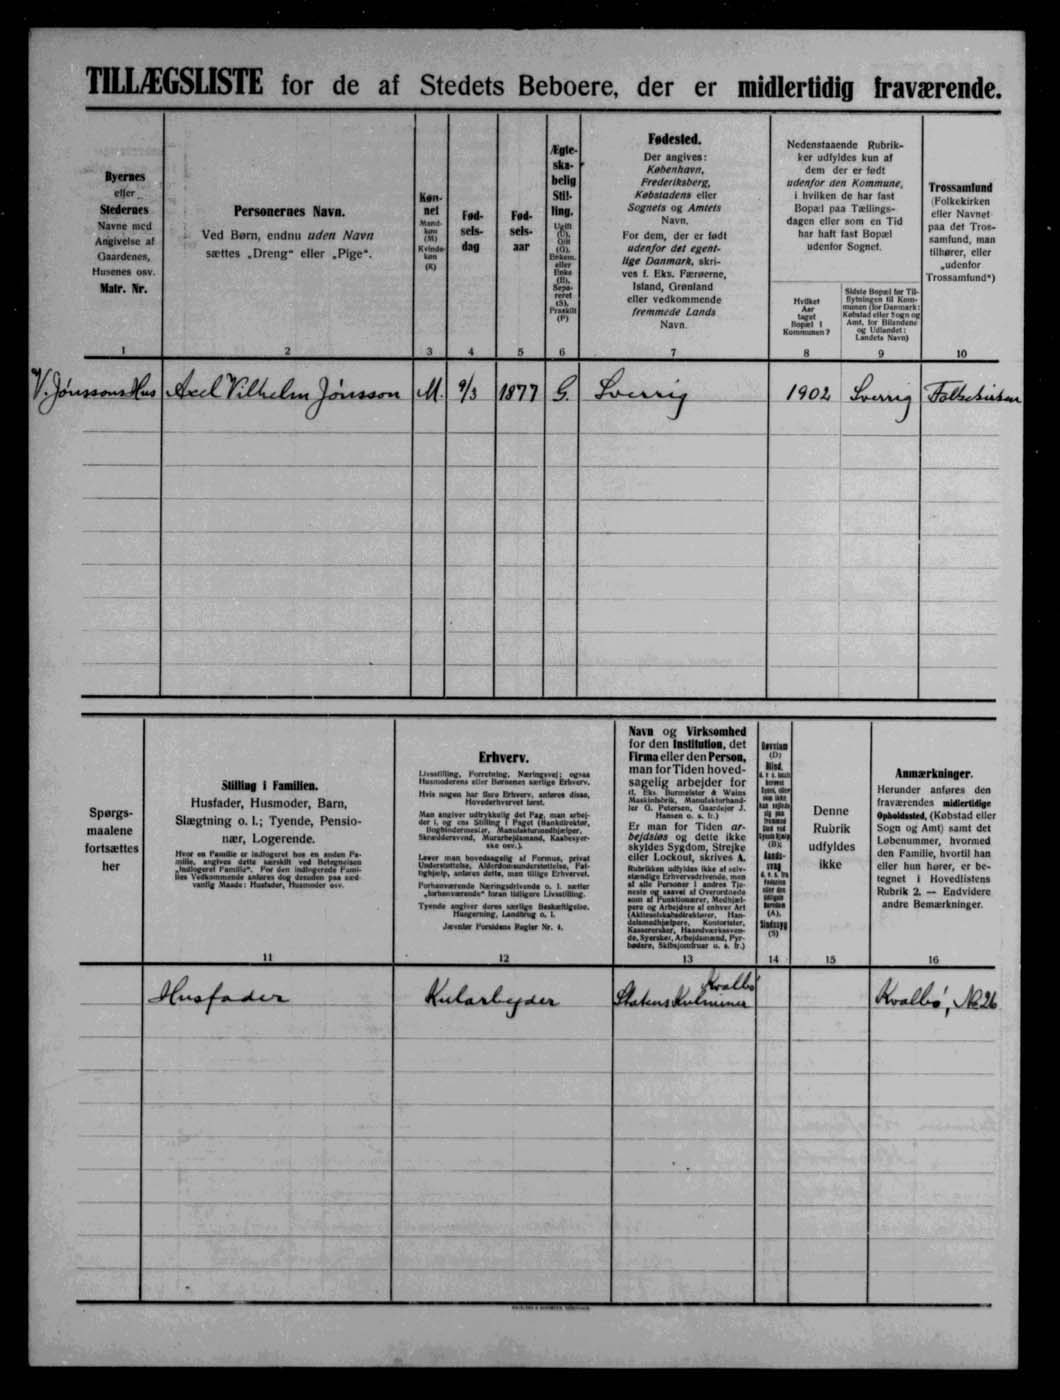 TILLÆGSLISTE for de af Stedets Beboere, der er midlertidig fraværende.
Byernes
eller
Stedernes
Navne med
Angivelse af
Gaardenes,
Husenes osv.
Matr. Nr.
1
Personernes Navn.
Ved Børn, endnu uden Navn
sættes „Dreng“ eller „Pige“.
2
Køn-
net
Mand-
køn
(M)
Kvinde-
køn
(K)
3
Fød-
sels-
dag
4
Fød-
sels-
aar
5
Ægte-
ska-
belig
Stil-
ling.
Ugift
(U),
Gift
(G),
Enkem.
eller
Enke
(E),
Sepa-
reret
(S),
Fraskilt
(F)
6
Fødested.
Der angives:
København,
Frederiksberg,
Købstadens eller
Sognets og Amtets
Navn.
For dem, der er født
udenfor det egent-
lige Danmark, skri-
ves f. Eks. Færøerne,
Island, Grønland
eller vedkommende
fremmede Lands
Navn.
7
Nedenstaaende Rubrik-
ker udfyldes kun af
dem der er født
udenfor den Kommune,
i hvilken de har fast
Bopæl paa Tællings-
dagen eller som en Tid
har haft fast Bopæl
udenfor Sognet.
Hvilket
Aar
taget
Bopæl i
Kommunen?
8
Sidste Bopæl før Til-
flytningen til Kom-
munen (for Danmark:
Købstad eller Sogn og
Amt, for Bilandene
og Udlandet:
Landets Navn)
9
Trossamfund
(Folkekirken
eller Navnet
paa det Tros-
samfund, man
tilhører, eller
„udenfor
Trossamfund“)
10
V. Jónssons Hus Axel Vilhelm Jónsson M. 9/3 1877 G. Sverrig 1902 Sverrig Folkekirken
Spørgs-
maalene
fortsættes
her
Stilling i Familien.
Husfader, Husmoder, Barn,
Slægtning o. l.; Tyende, Pensio-
nær, Logerende.
Hvor en Familie er indlogeret hos en anden Fa-
milie, angives dette særskilt ved Betegnelsen
„indlogeret Familie“. For den indlogerede Fami-
lies Vedkommende anføres dog desuden paa sæd-
vanlig Maade: Husfader, Husmoder osv.
11
Erhverv.
Livsstilling, Forretning, Næringsvej; ogsaa
Husmoderens eller Børnenes særlige Erhverv.
Hvis nogen har flere Erhverv, anføres disse,
Hovederhvervet først.
Man angiver udtrykkelig det Fag, man arbej-
der i, og ens Stilling i Faget (Bankdirektør,
Bogbindermester, Manufakturmedhjælper,
Skræddersvend, Murarbejdsmand, Kaabesyer-
ske osv.).
Lever man hovedsagelig af Formue, privat
Understøttelse, Alderdomsunderstøttelse, Fat-
tighjælp, anføres dette, men tillige Erhvervet.
Forhenværende Næringsdrivende o. l. sætter
„forhenværende“ foran tidligere Livsstilling.
Tyende angiver deres særlige Beskæftigelse.
Husgerning, Landbrug o. l.
Jævnfør Forsidens Regler Nr. 4.
12
Navn og Virksomhed
for den Institution, det
Firma eller den Person,
man for Tiden hoved-
sagelig arbejder for
(f. Eks. Burmeister & Wains
Maskinfabrik, Manufakturhand-
ler G. Petersen, Gaardejer J.
Hansen o. s. fr.)
Er man for Tiden ar-
bejdsløs og dette ikke
skyldes Sygdom, Strejke
eller Lockout, skrives A.
Rubrikken udfyldes ikke af selv-
stændige Erhvervsdrivende, men
af alle Personer i andres Tje-
neste og saavel af Overordnede
som af Funktionærer, Medhjæl-
pere og Arbejdere af enhver Art
(Aktieselskabsdirektører, Han-
delsmedhjælpere, Kontorister,
Kassererster, Haandværkssven-
de, Syersker, Arbejdsmænd, Fyr-
bødere, Skibsjomfruer o. s. fr.)
13
Døvstum
(D)
Blind,
14
Denne
Rubrik
udfyldes
ikke
15
Anmærkninger.
Herunder anføres den
fraværendes midlertidige
Opholdssted, (Købstad eller
Sogn og Amt) samt det
Løbenummer, hvormed
den Familie, hvortil han
eller hun hører, er be-
tegnet i Hovedlistens
Rubrik 2. — Endvidere
andre Bemærkninger.
16
Husfader Kularbejder Statens Kulminer Kvalbø Kvalbø, No 26